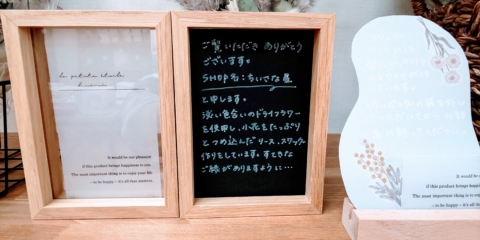 la petite étoile
It would be our pleasure
if this product brings happiness to you.
The most important thing is to enjoy your life
- to be happy - it's all that matters.
ご覧いただき ありがとう
ございます。
SHOP名:ちいさな星
と申します。
淡い色合いのドライフラワー
を使用し、小花をたっぷり
とつめ込んだリース、スワッグ
作りをしています。すてきな
ご縁がありますように…
It would be our
if this product brings happines
The most important thing is to enjoy
- to be happy - it's all that